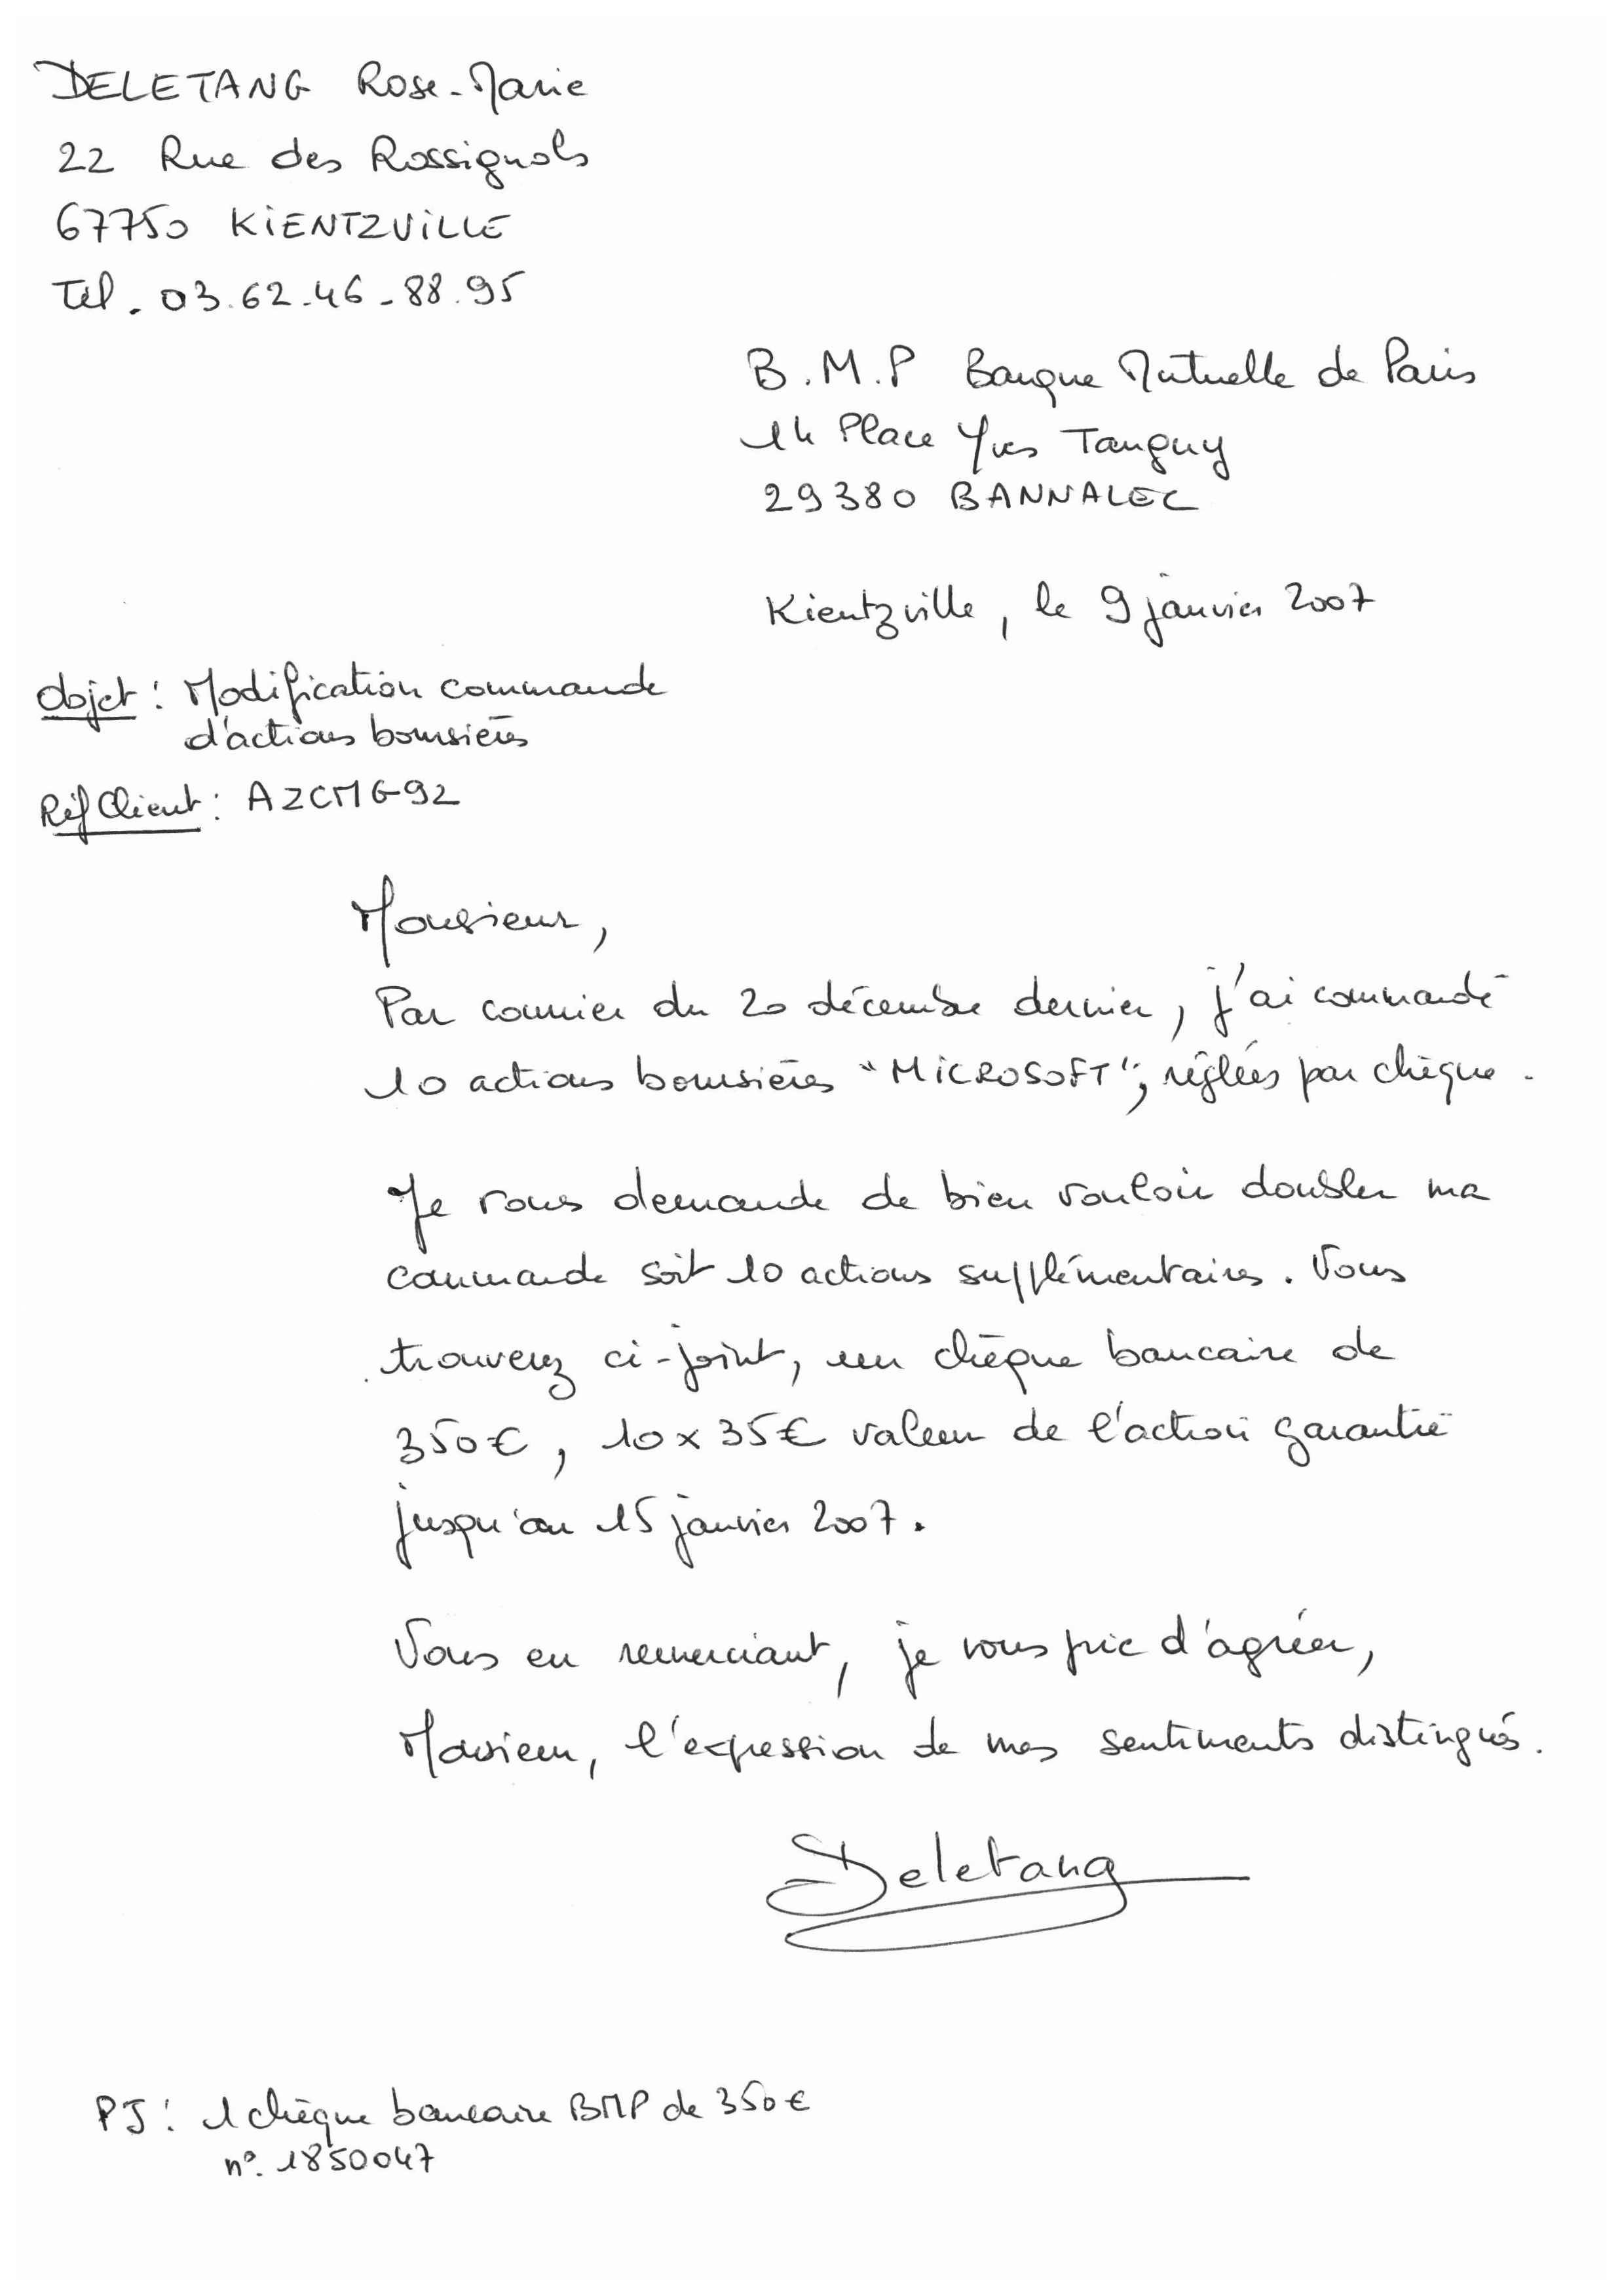 DELETANG Rose-Marie
22 Rue des Rossignols
67750 KIENTZVILLE
Tél. 03.62.46.88.95
B.M.P Banque Mutuelle de Paris
14 Place Yves Tanguy
29380 BANNALEC
Kientzville, le 9 janvier 2007
Objet : Modification commande
d'actions boursières
Réf Client : AZCMG92
Monsieur,
Par courrier du 20 décembre dernier, j'ai commandé
10 actions boursières "MICROSOFT", réglées par chèque.
Je vous demande de bien vouloir doubler ma
commande soit 10 actions supplémentaires. Vous
trouverez ci-joint, un chèque bancaire de
350€, 10 x 35€ valeur de l'action garantie
jusqu'au 15 janvier 2007.
Vous en remerciant, je vous prie d'agréer,
Monsieur, l'expression de mes sentiments distingués.
Deletang
PJ : 1 chèque bancaire BMP de 350€
n°. 1850047